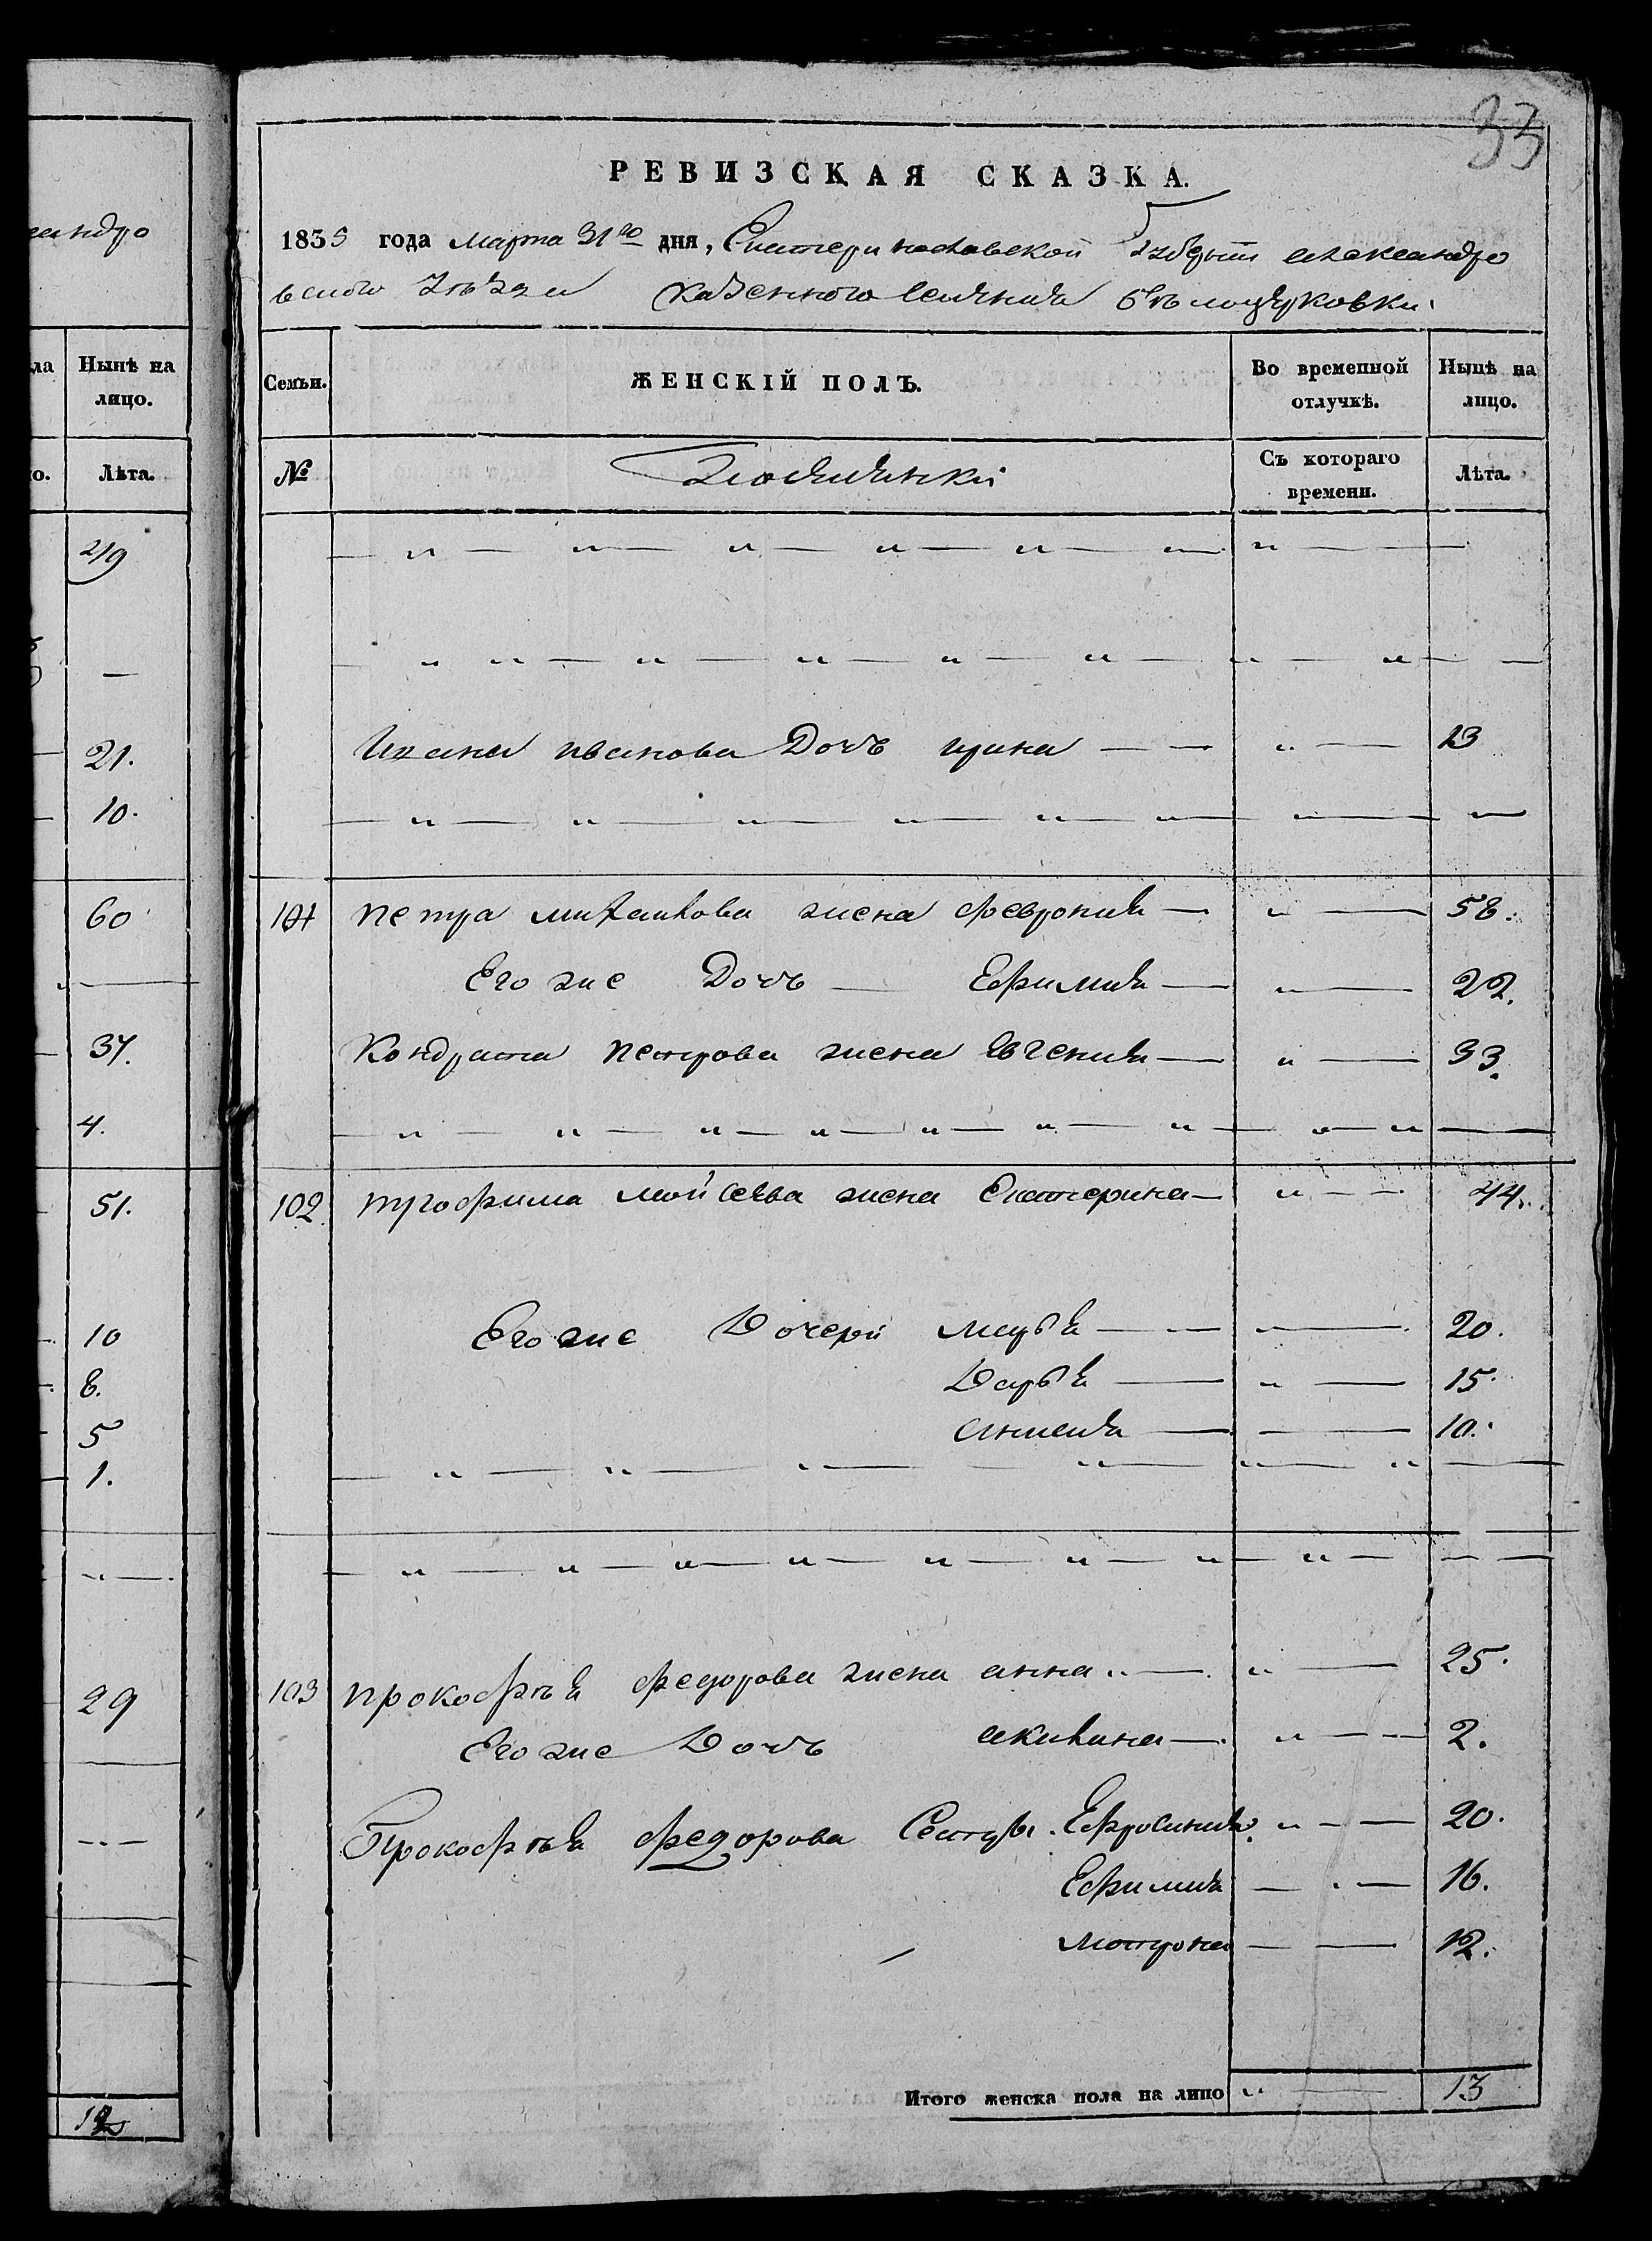 андро
ла
Нынѣ на
лицо.
о.
Лѣта.
49
—
21.
10.
60
37.
4.
51.
10
8.
5
1.
29
33
РЕВИЗСКАЯ СКАЗКА.
1835 года марта 31го дня, Екатеринославской Губернiи александро
вского уѣзда казенного селения бѣлоцерковки.
Семьи.
ЖЕНСКІЙ ПОЛЪ.
Во временной
отлучкѣ.
Нынѣ на
лицо.
№
Съ котораго
времени.
Лѣта.
Ивана иванова Дочь ирина — — 13
101 петра михайлова жена феврония — 58.
Его же Дочь — Ефимия — 22.
Кондрата петрова жена Евгения — 33.
102 трофима мойсеева жена Екатерина — 44.
Его же Дочери марья — 20.
Дарья — 15.
10.
103 прокофѣя федорова жена анна — 25.
Его же Дочь акилина — 2.
Прокофѣя федорова Сестры. Ефросиния 20.
Ефимия — 16.
мотрона — 12.
Итого женска пола на лицо 13